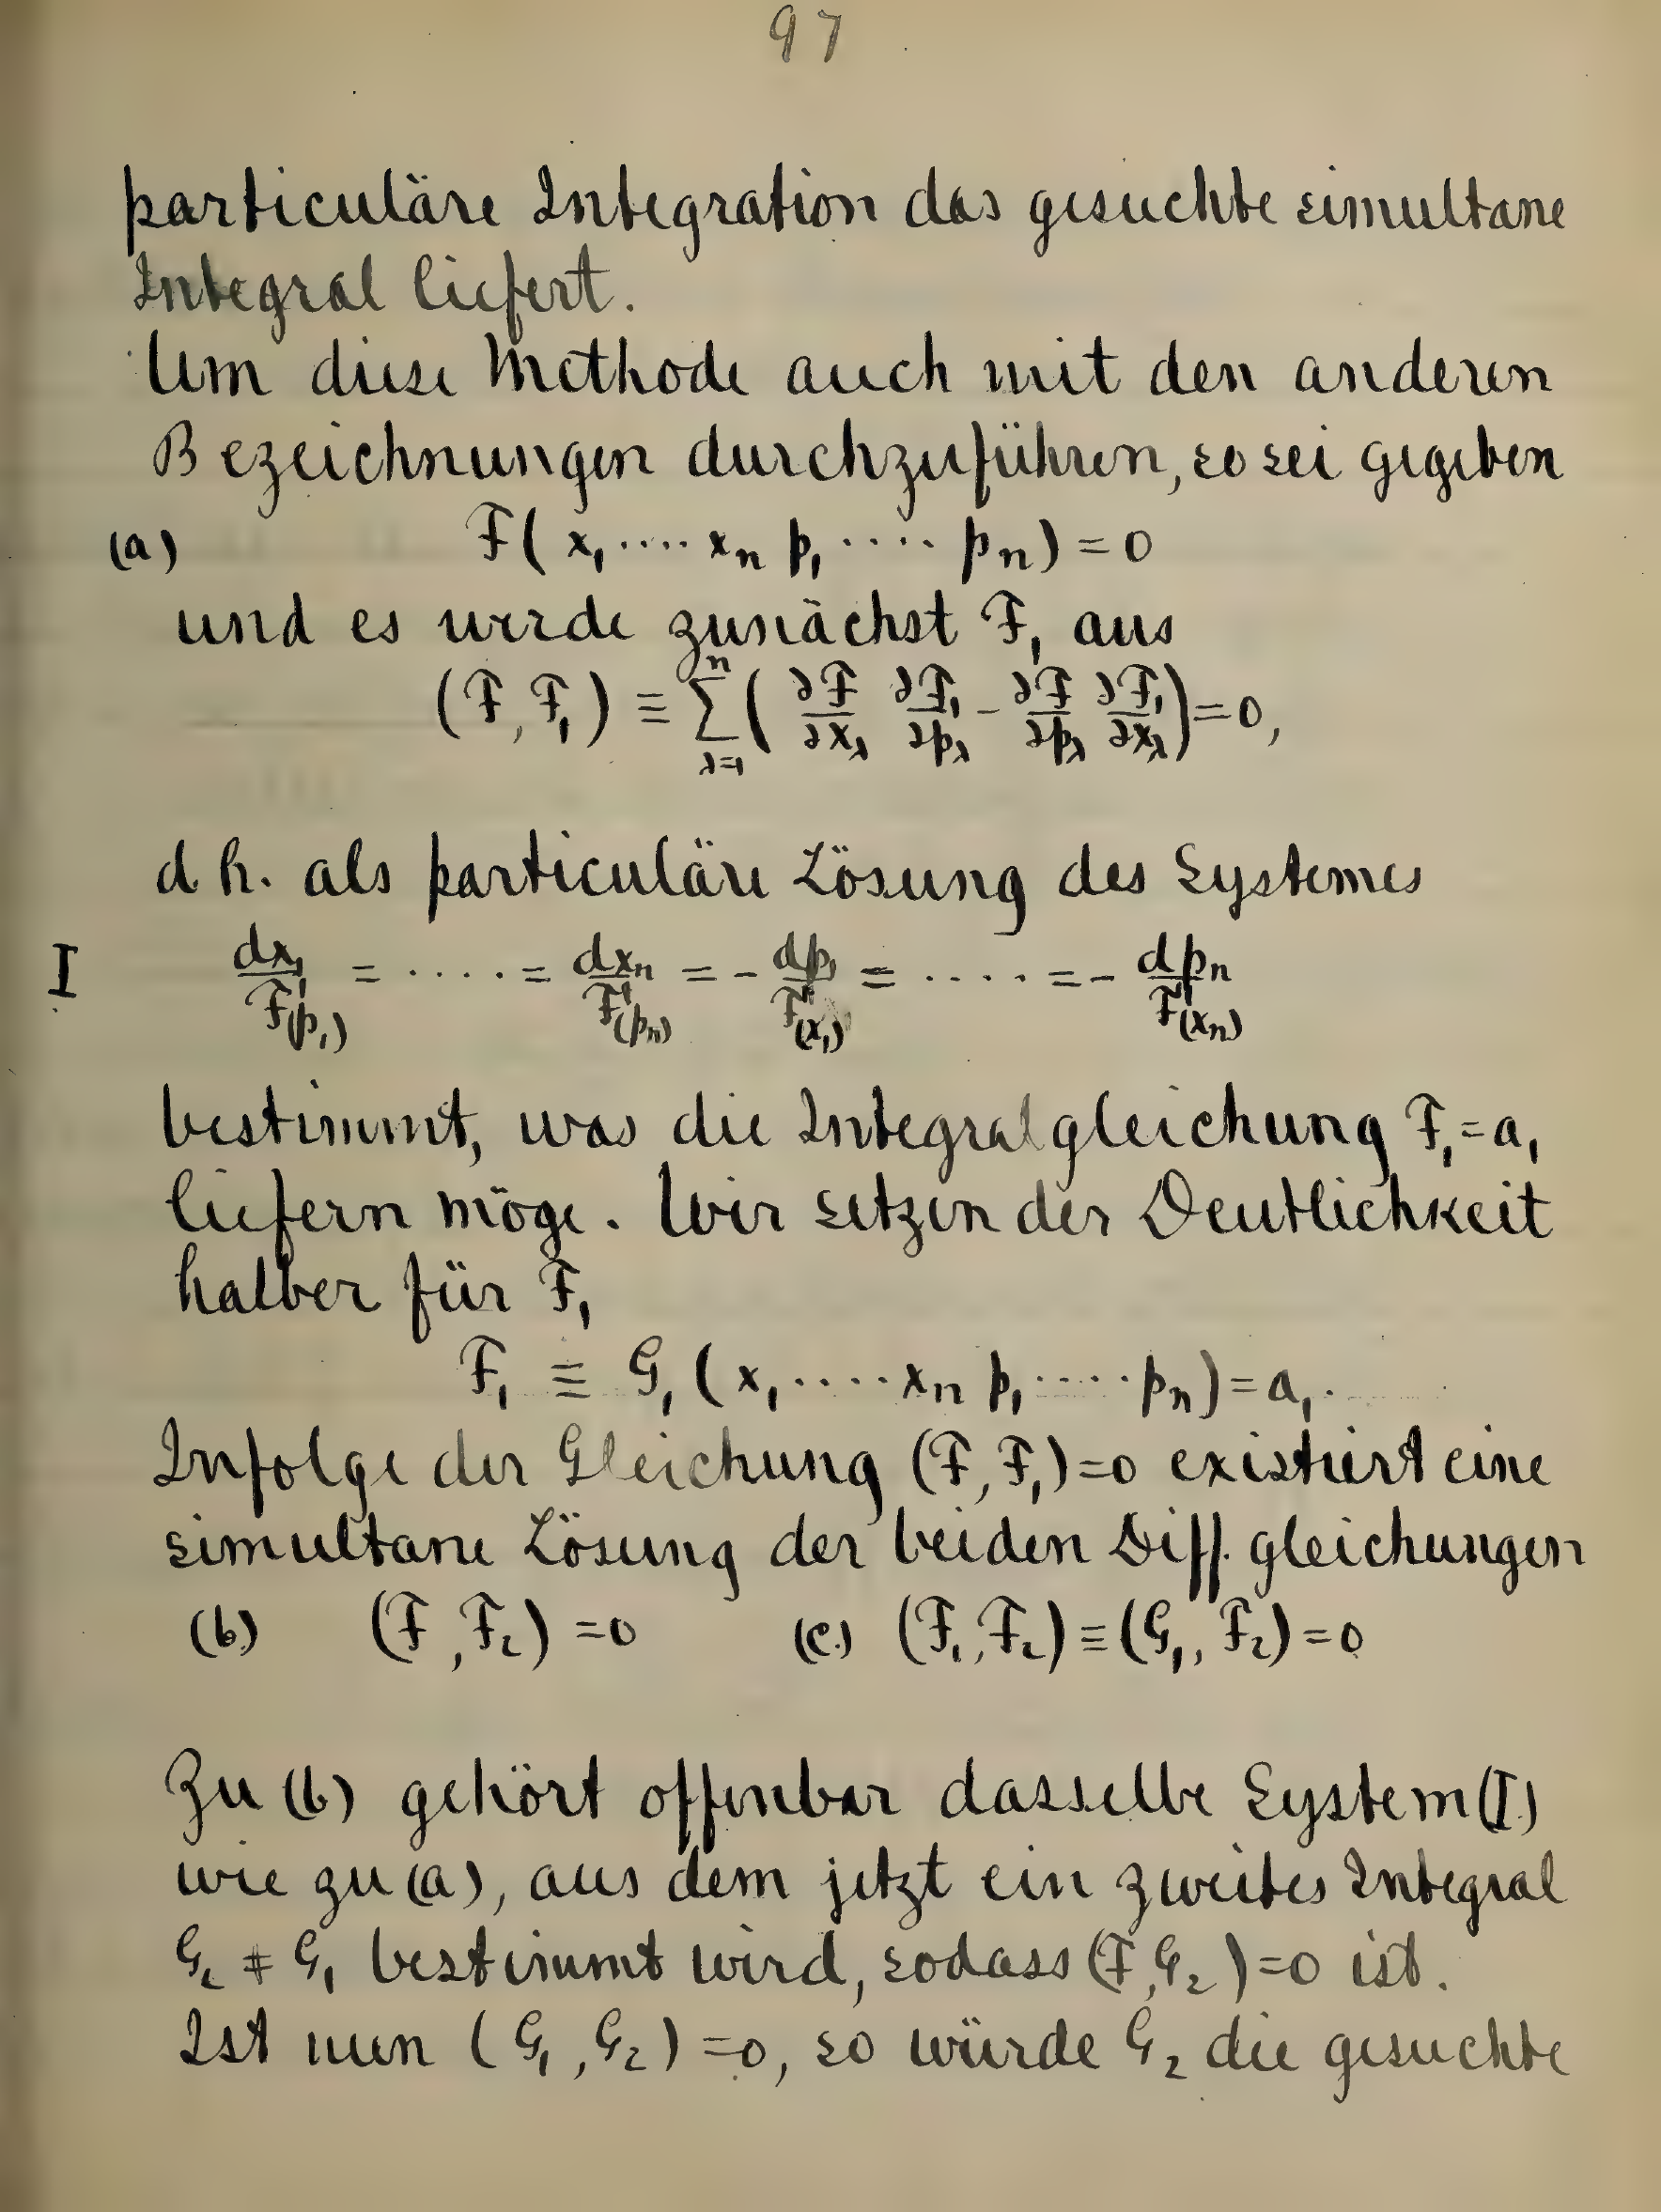 97
particuläre Integration das gesuchte simultane
Integral liefert.
Um diese Methode auch mit den anderen
Bezeichnungen durchzuführen, so sei gegeben
(a) F( x₁ ···· xₙ p₁ ···· pₙ) = 0
und es werde zunächst F₁ aus
(F, F₁) ≡ ∑_{λ=1}^{n} ( ∂F/∂x_λ ∂F₁/∂p_λ - ∂F/∂p_λ ∂F₁/∂x_λ ) = 0,
d. h. als particuläre Lösung des Systemes
I dx₁/F'(p₁) = ····· = dxₙ/F'(pₙ) = - dp₁/F'(x₁) = ····· = - dpₙ/F'(xₙ)
bestimmt, was die Integralgleichung F₁ = a₁
liefern möge. Wir setzen der Deutlichkeit
halber für F₁
F₁ ≡ G₁ ( x₁ ···· xₙ p₁ ···· pₙ) = a₁.
Infolge der Gleichung (F, F₁) = 0 existiert eine
simultane Lösung der beiden Diff. gleichungen
(b) (F, F₂) = 0 (c.) (F₁, F₂) ≡ (G₁, F₂) = 0
Zu (b) gehört offenbar dasselbe System (I.)
wie zu (a), aus dem jetzt ein zweites Integral
G₂ ≠ G₁ bestimmt wird, sodass (F, G₂) = 0 ist.
Ist nun (G₁, G₂) = 0, so würde G₂ die gesuchte